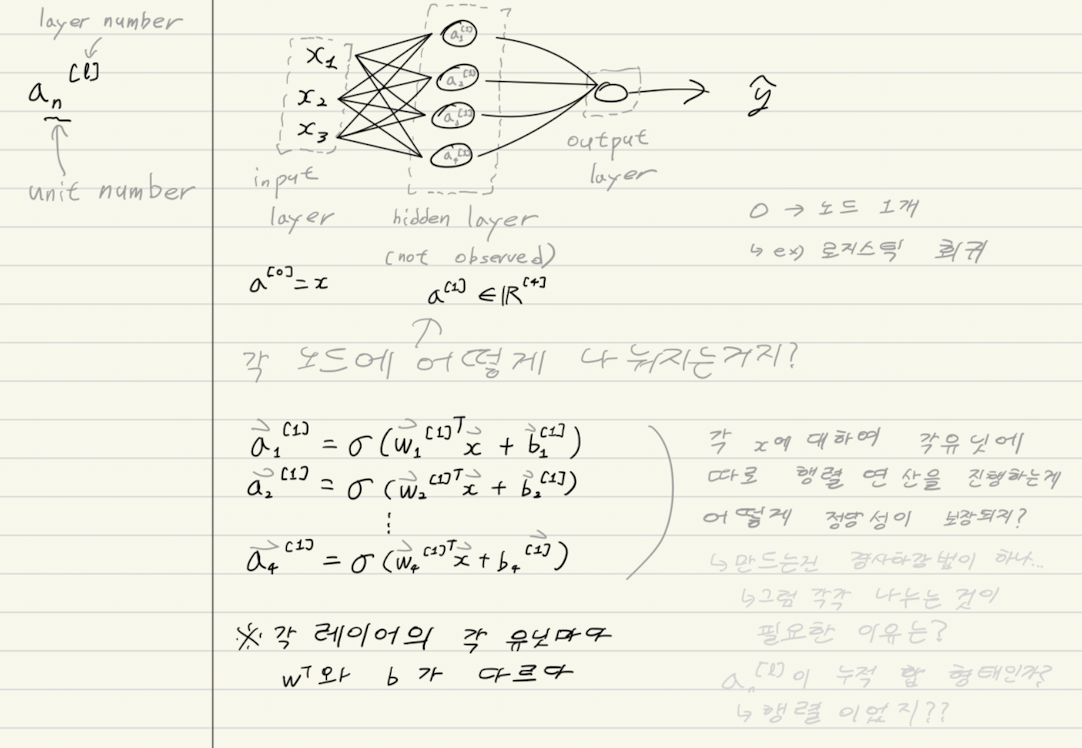 layer number
a_n^[l]
unit number
x_1
x_2
x_3
a_1^[1]
a_2^[1]
a_3^[1]
a_4^[1]
ŷ
input layer
hidden layer
(not observed)
output layer
O → 노드 1개
↳ ex) 로지스틱 회귀
a^[0] = x
a^[1] ∈ ℝ^[4]
각 노드에 어떻게 나눠지는거지?
a⃗_1^[1] = σ(w⃗_1^[1]ᵀ x⃗ + b⃗_1^[1])
a⃗_2^[1] = σ(w⃗_2^[1]ᵀ x⃗ + b⃗_2^[1])
⋮
a⃗_4^[1] = σ(w⃗_4^[1]ᵀ x⃗ + b_4^[1])
각 x에 대하여 각유닛에
따로 행렬 연산을 진행하는게
어떻게 정당성이 보장되지?
↳ 만드는건 경사하강법이 하나...
↳ 그럼 각각 나누는 것이
필요한 이유는?
a_n^[l]이 누적 합 형태인가?
↳ 행렬 이었지??
※ 각 레이어의 각 유닛마다
wᵀ와 b가 다르다